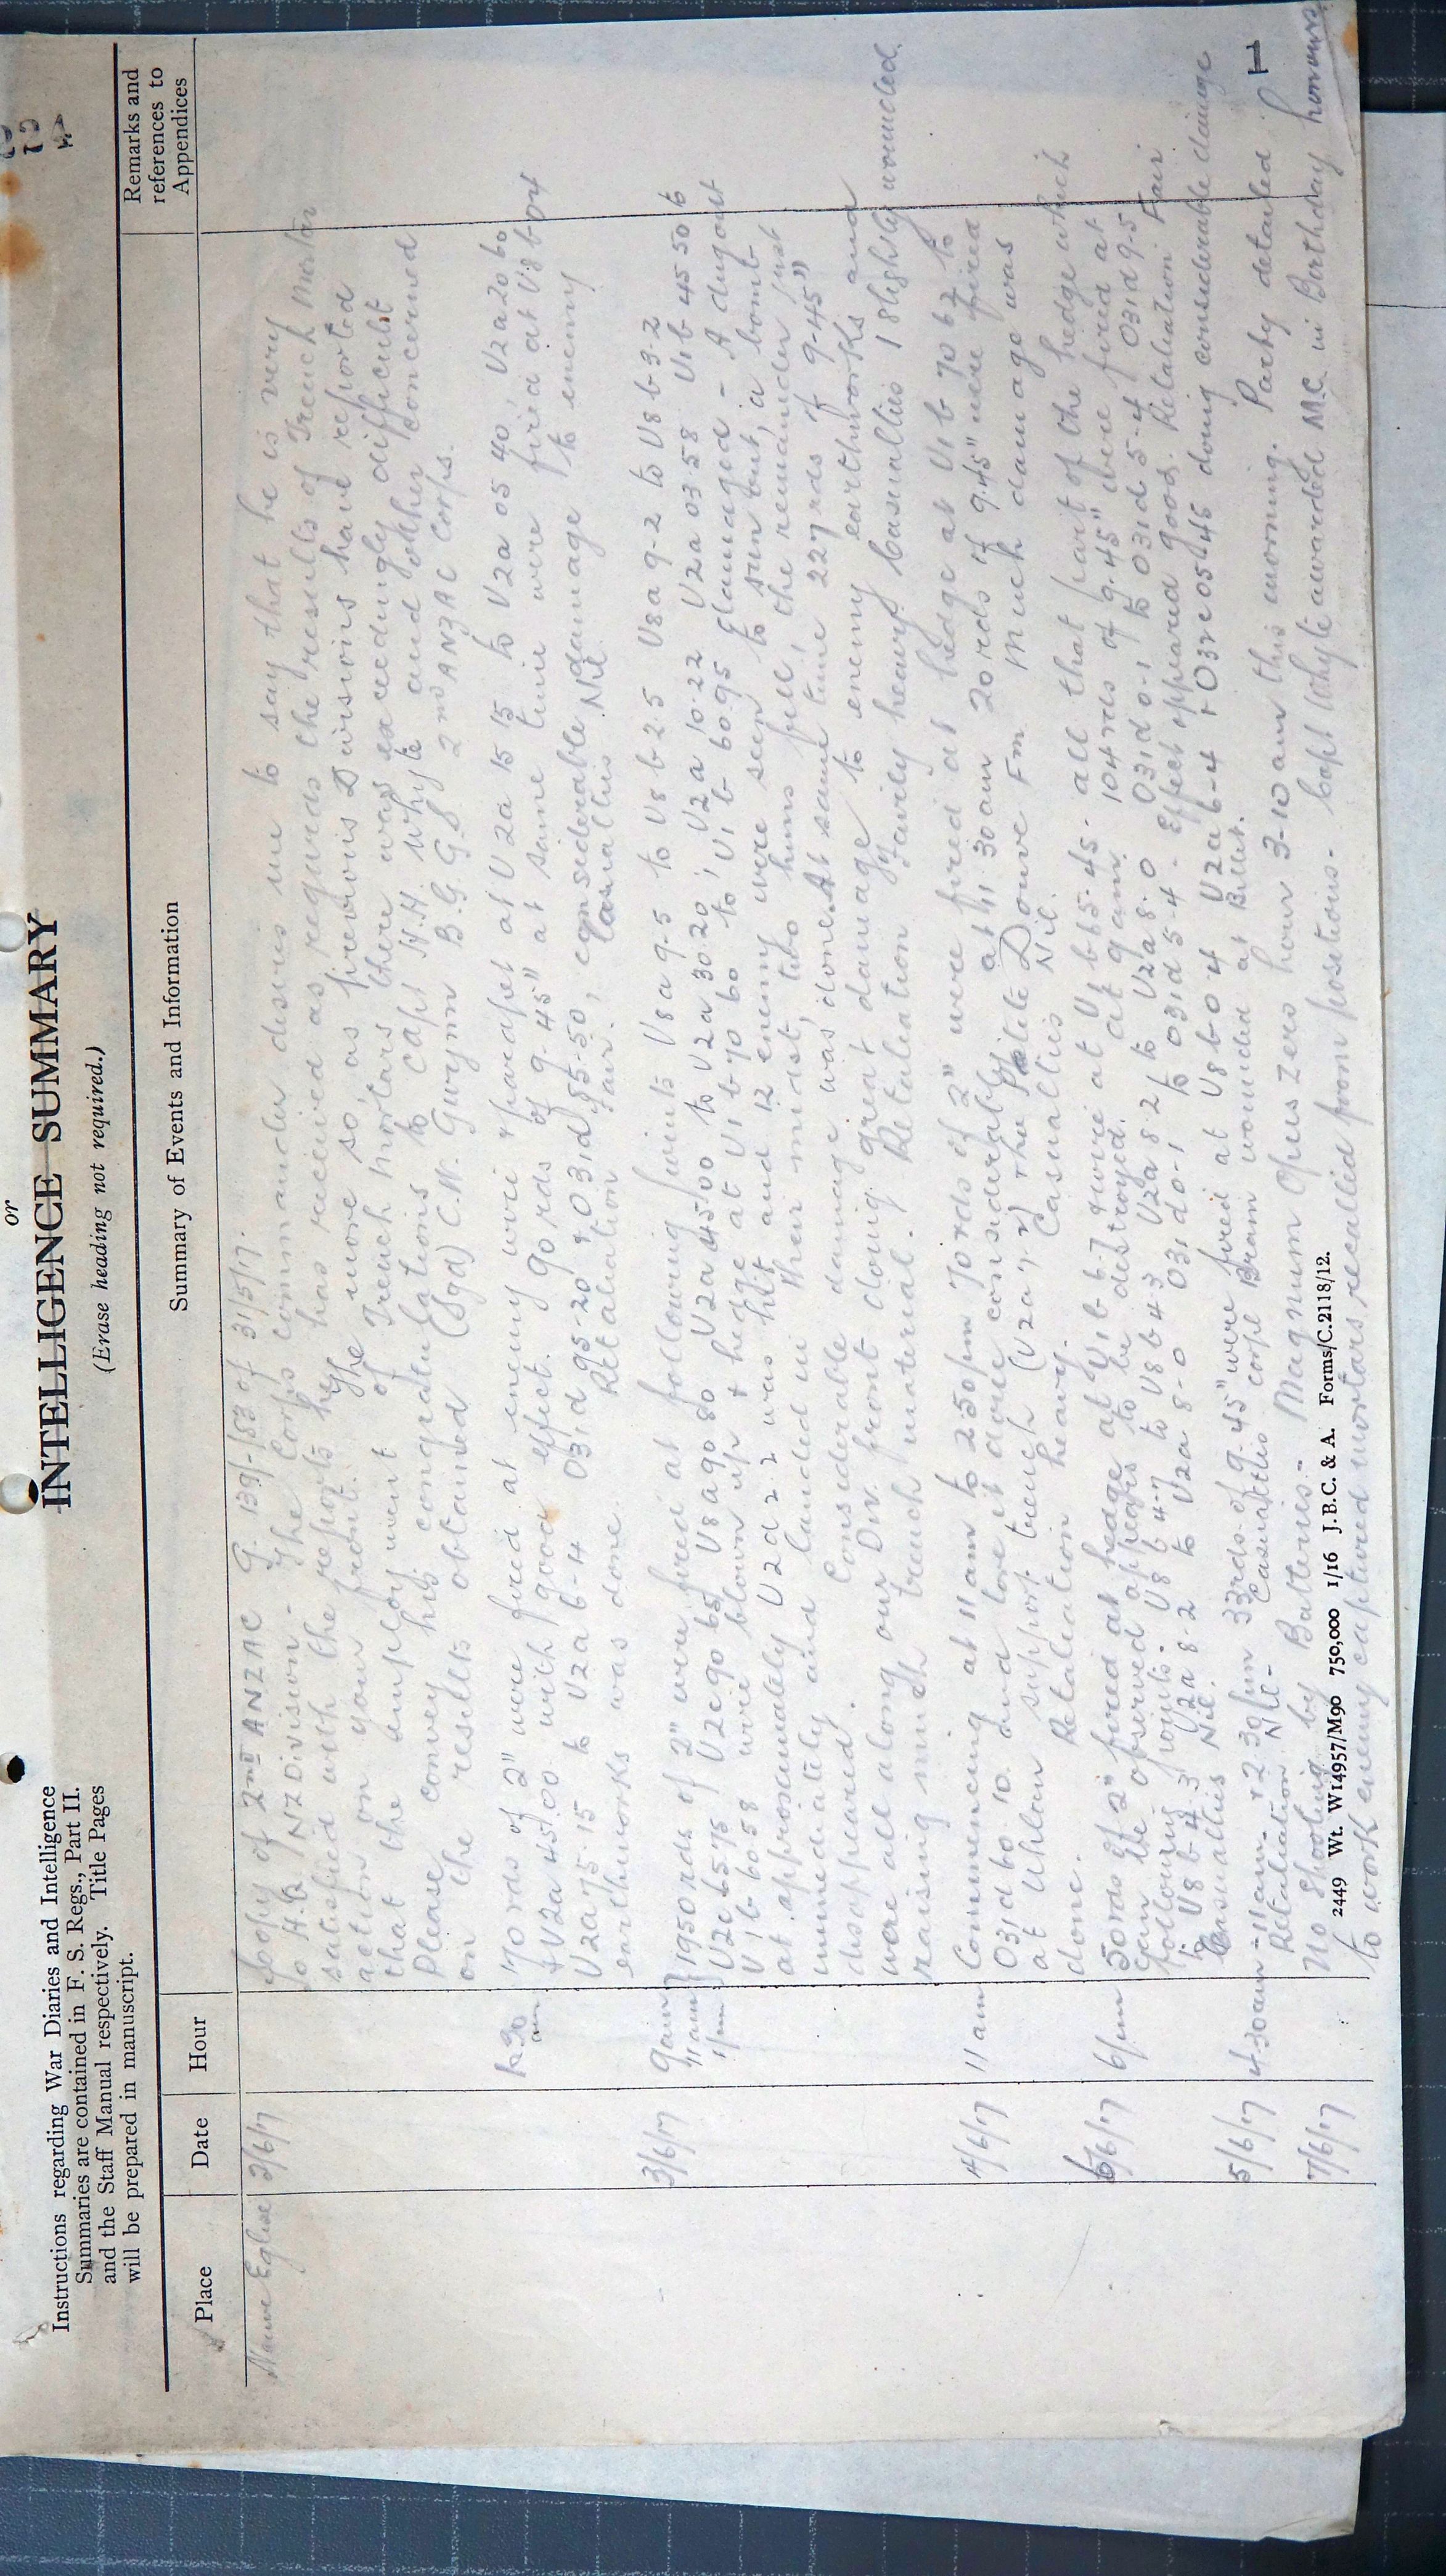 or
INTELLIGENCE SUMMARY
(Erase heading not required.)
Instructions regarding War Diaries and Intelligence
Summaries are contained in F. S. Regs., Part II.
and the Staff Manual respectively. Title Pages
will be prepared in manuscript.
Place Date Hour Summary of Events and Information Remarks and references to Appendices
Neuve Eglise 2/6/17 Copy of 2nd ANZAC G. 139/ of 31/5/17.
to H.Q NZ Division - The Corps Commander desires me to say that he is very
satisfied with the reports he has received as regards the results of Trench Mortar
action on your front. The more so, as previous Divisions have reported
that the employment of Trench Mortars there was exceedingly difficult
Please convey his congratulations to Capt N.H. Whyte and other concerned
on the results obtained (Sgd) C.W. Gwynn B.G.G.S 2nd ANZAC Corps.
70 rds of 2" were fired at enemy wire & parapet at U2a 15 15 to U2a 05 40, U2a 20 60
& U2a 45.00 with good effect. 90 rds of 9.45" at same time were fired at U8 b 04
U2a 75.15 to U2a 6-4 O31d 95-20 & O31d 55-50, considerable damage to enemy
earthworks was done Retaliation fair. Casualties Nil
3/6/17 9am 11am 1pm 1950 rds of 2" were fired at following points U8a 9-5 to U8 b 2.5 U8a 9-2 to U8 b 3-2
U2c 65 75 U2c 90 65 U8a 90 80 U2a 45.00 to U2a 30.20, U2a 10.22 U2a 03.58 U1b 45 50 &
U1b 60 58 were blown up & hedge at U1b 70 60 to U1b 60.95 damaged - A dugout
at approximately U2d 2 2 was hit and 12 enemy were seen to run out, a bomb
immediately and landed in their midst, two huns fell, the remainder just
disappeared. Considerable damage was done. At same time 227 rds of 9-45"
were all along our Div. front doing great damage to enemy earthworks and
raising much trench material. Retaliation fairly heavy. Casualties 1 slightly wounded
4/6/17 11am Commencing at 11am to 2.50pm 70 rds of 2" were fired at hedge at U1b 70 62 to
O31d 60 10. and tore it down considerably at 11.30am 20 rds of 9.45" were fired
at Uhlan support trench (U2a 1.2) the Petite Douve Fm Much damage was
done. Retaliation heavy. Casualties Nil.
6/6/17 6pm 50 rds of 2" fired at hedge at U1b 6.7 & wire at U1b 65-45. all that part of the hedge which
can be observed appears to be destroyed. at 9am 104 rds of 9.45" were fired at
following points. U8b 4-7 to U8b 4.3 U2a 8.2 to U2a 8.0 O31d 0-1 to O31d 5-4 O31d 9-5
U8b 4.3 U2a 8.2 to U2a 8-0 O31d 0-1 to O31d 5-4. Effect appeared good. Retaliation Fair
Casualties Nil.
5/6/17 4.30am 11am & 2.30pm 33 rds of 9.45" were fired at U8b 0 4 U2a 6-4 & O32c 05 45 doing considerable damage
Retaliation Nil - Casualties Corpl Brain wounded at Billet.
7/6/17 No Shooting by Batteries - Magnum Opus Zero hour 3-10am this morning. Party detailed
to work enemy captured mortars recalled from positions. Capt Whyte awarded M.C. in Birthday honours
2449 Wt. W14957/M90 750,000 1/16 J.B.C. & A. Forms/C.2118/12.